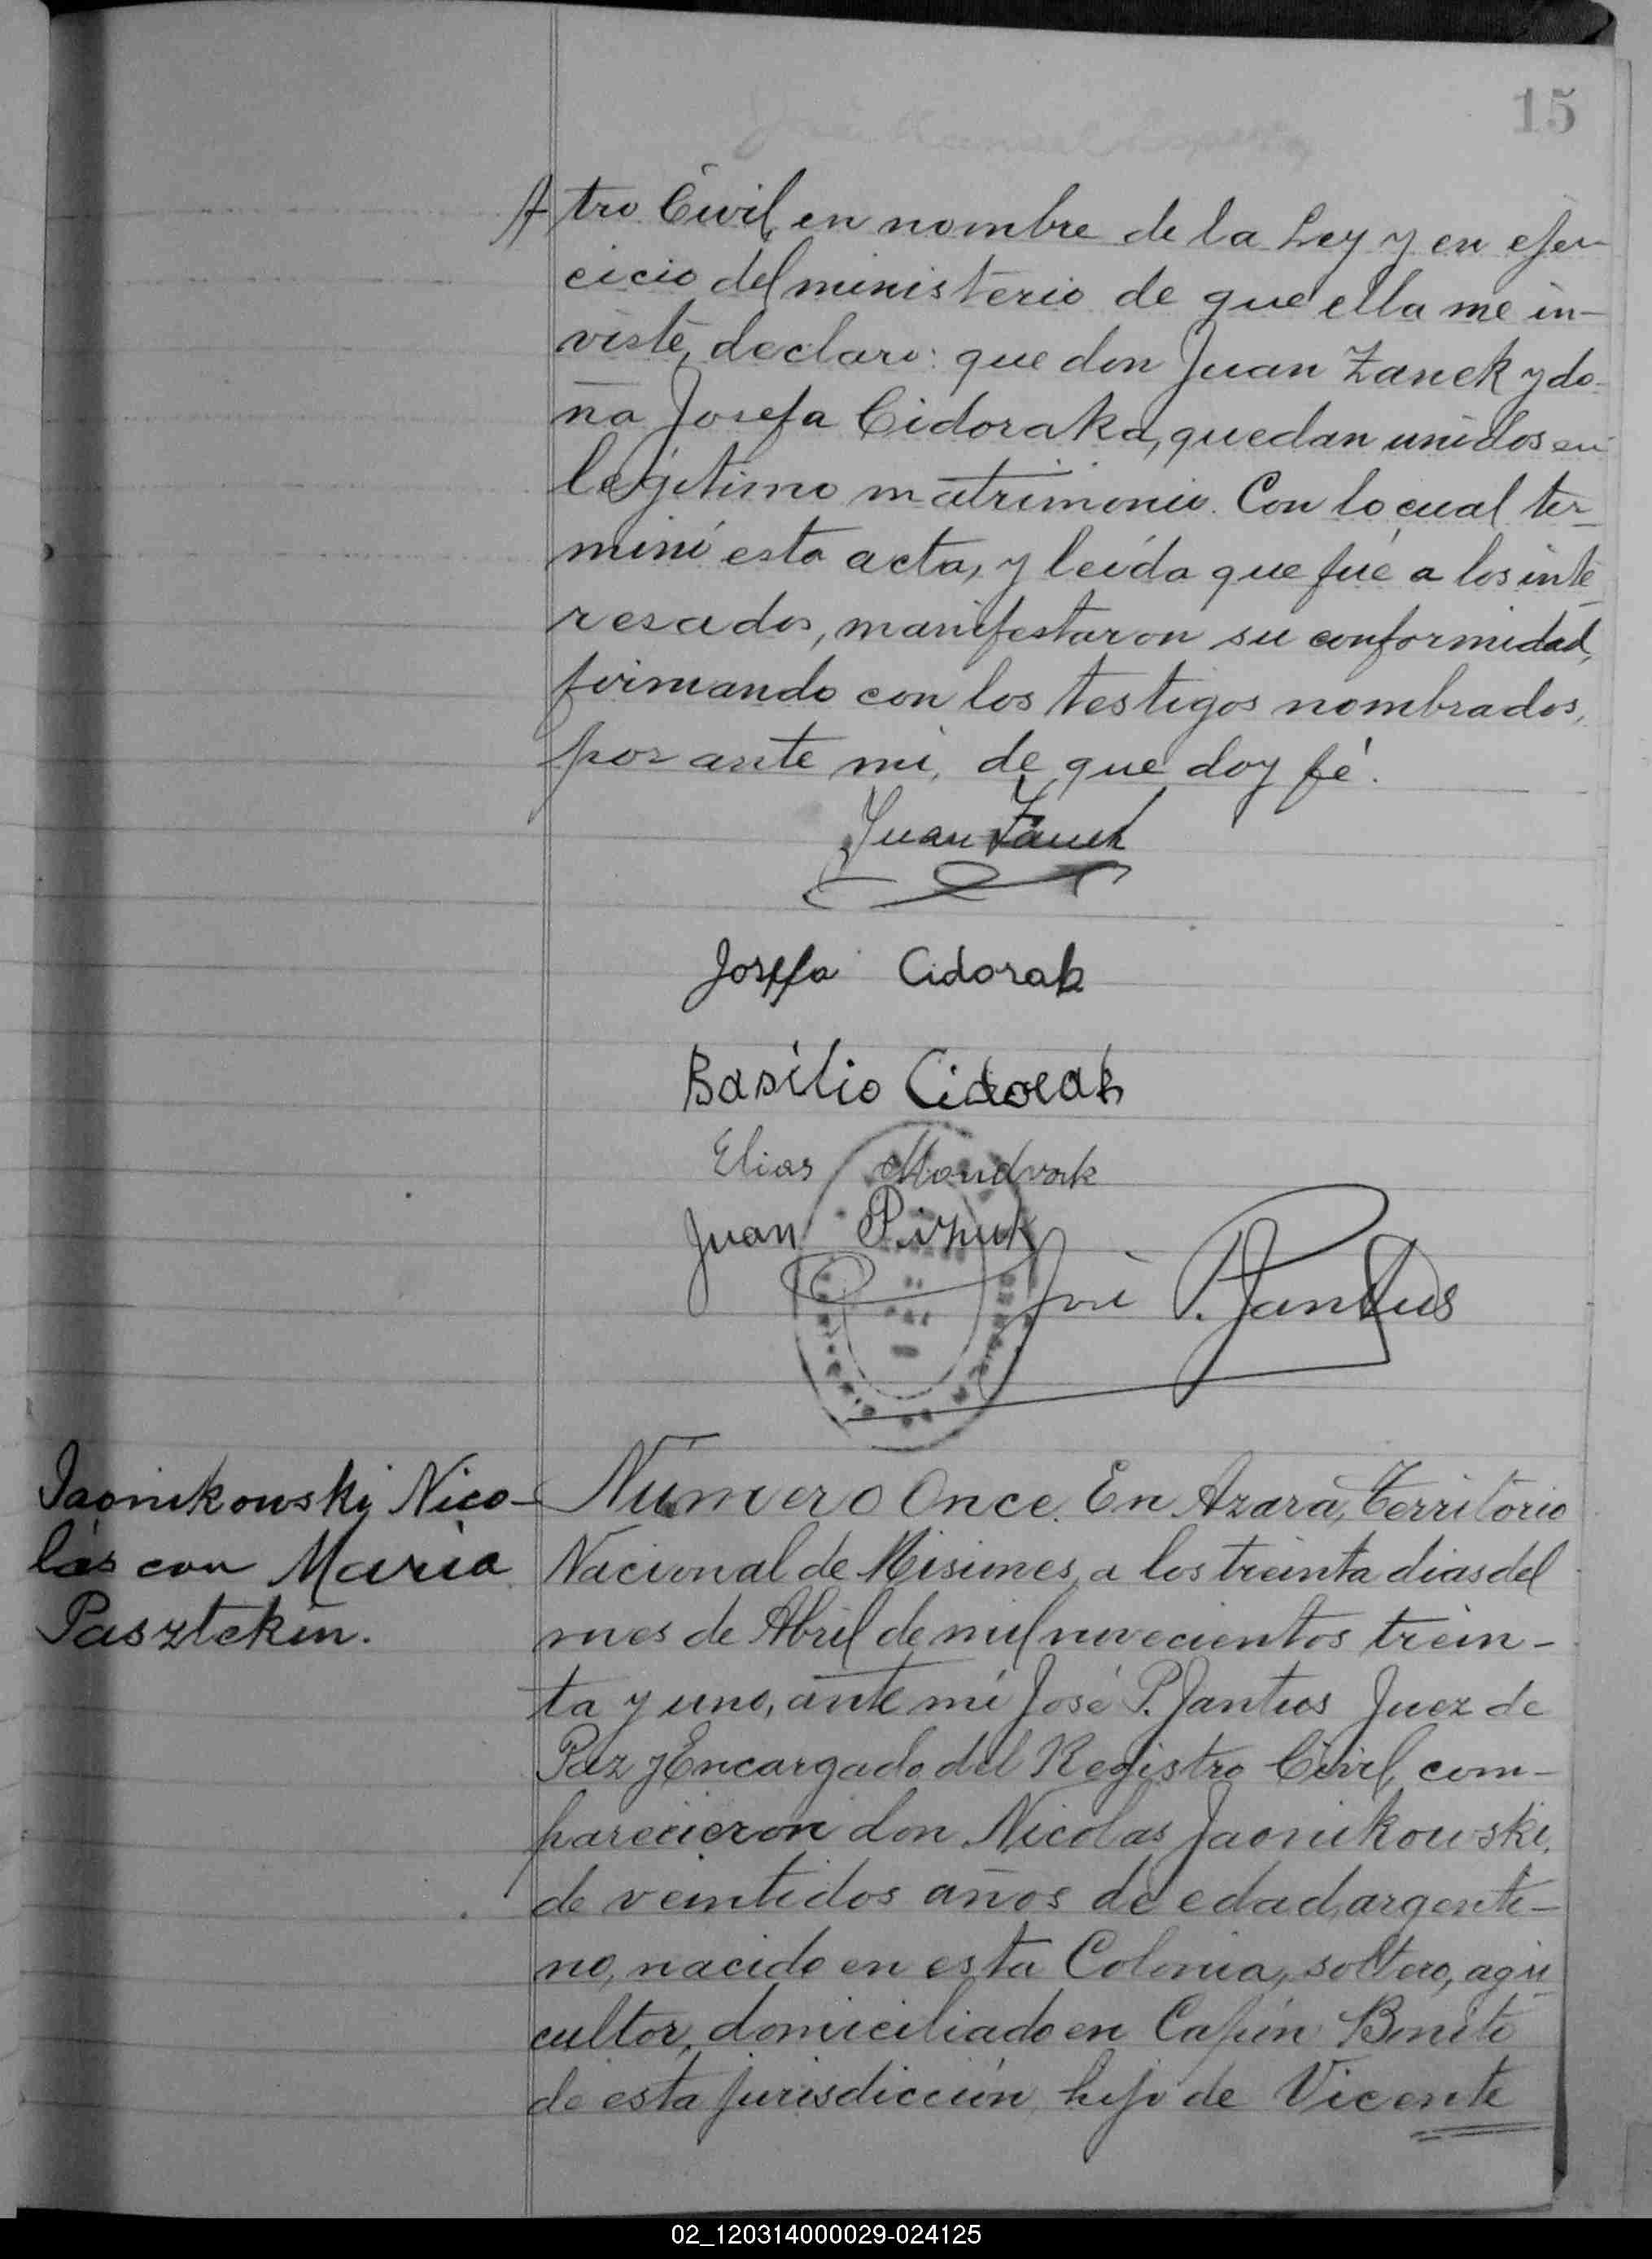 15
tro Civil, en nombre de la Ley y en ejer-
cicio del ministerio de que ella me in-
viste, declaro: que don Juan Zanek y do-
ña Josefa Cidoraka, quedan unidos en
legítimo matrimonio. Con lo cual ter-
minó esta acta, y leída que fué a los inte
resados, manifestaron su conformidad,
firmando con los testigos nombrados,
por ante mi, de que doy fé.
Juan Zanek
Josefa Cidorak
Basilio Cidorak
Elias
Juan
José P. Jantus
Jaonikowski, Nico-
lás con María
Pasztekin.
Número Once. En Azara, Territorio
Nacional de Misiones, a los treinta dias del
mes de Abril de mil novecientos trein-
ta y uno, ante mí José P. Jantus Juez de
Paz y Encargado del Registro Civil, com-
parecieron don Nicolas Jaonikowski,
de veintidos años de edad, argenti-
no, nacido en esta Colonia, soltero, agri
cultor, domiciliado en Capón Bonito
de esta jurisdicción, hijo de Vicente
02_120314000029-024125